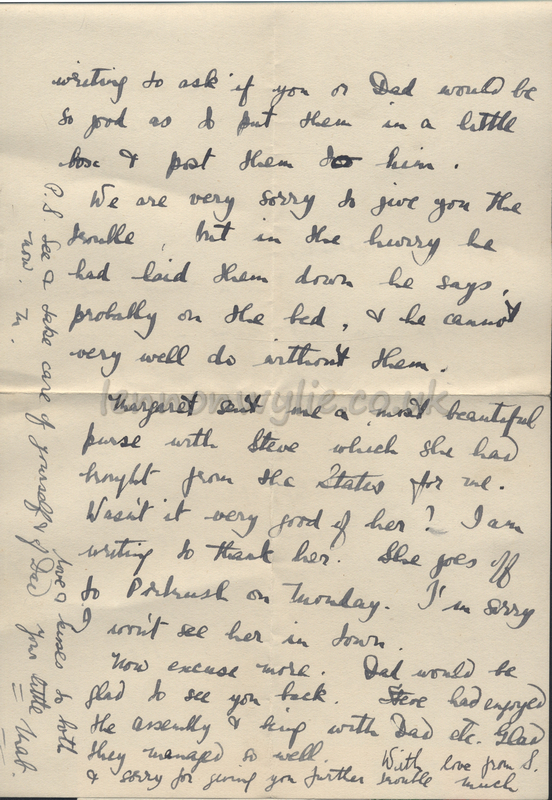 writing to ask if you or Dad would be
so good as to put them in a little
box & post them to him.
We are very sorry to give you the
trouble, but in the hurry he
had laid them down he says,
probably on the bed, & he cannot
very well do without them.
Margaret sent me a most beautiful
purse with Steve which she had
brought from the States for me.
Wasn't it very good of her? I am
writing to thank her. She goes off
to P'rtrush on Monday. I'm sorry
I won't see her in town.
Now excuse more. Dad would be
glad to see you back. Steve had enjoyed
the assembly & being with Dad etc. Glad
they managed so well. With love from S.
& sorry for giving you further trouble much
love & kisses to both
of Dad your little
P.S. See & take care of yourself &
now.
lennonwylie.co.uk